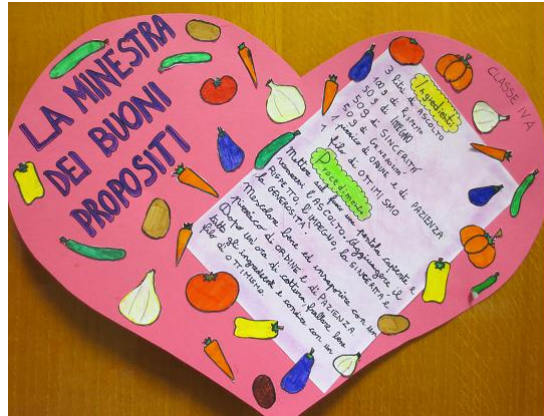 LA MINESTRA
DEI BUONI
PROPOSITI
CLASSE IV A
Ingredienti
3 litri di ASCOLTO
100 g di RISPETTO
50 g di IMPEGNO
50 g di SINCERITÀ
50 g di GENEROSITÀ
1 pizzico di ORDINE e di PAZIENZA
1 filo di OTTIMISMO
Procedimento
Mettere sul fuoco una pentola capiente e
versarvi l'ASCOLTO. Aggiungere il
RISPETTO, l'IMPEGNO, la SINCERITÀ e
la GENEROSITÀ.
Mescolare bene ed insaporire con un
pizzico di ORDINE e di PAZIENZA.
Dopo un'ora di cottura, frullare bene
tutti gli ingredienti e condire con un
filo d'OTTIMISMO.